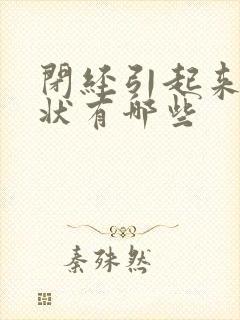 閉经引起来
状有哪些
秦殊然